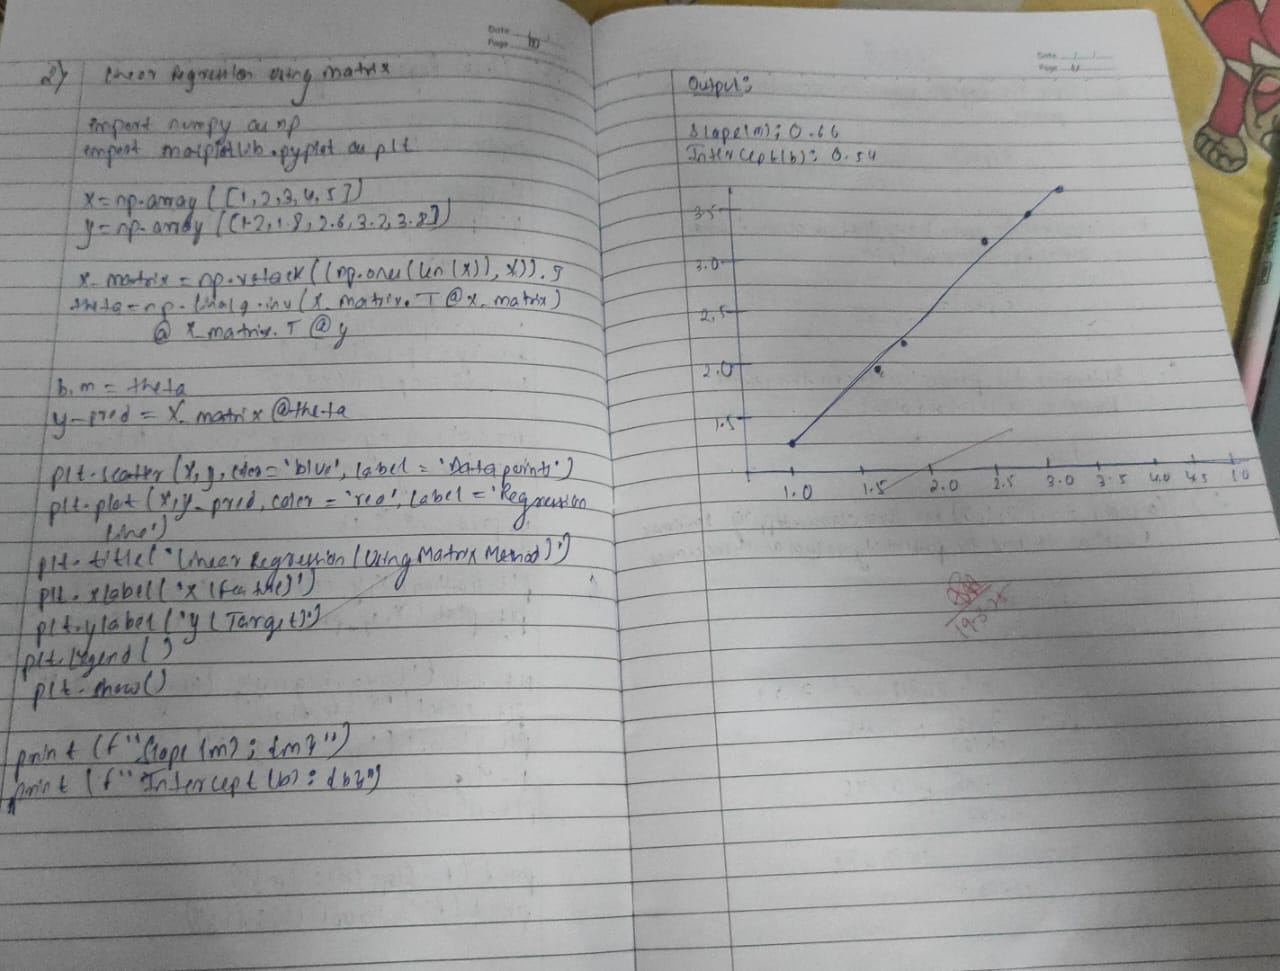 Date
Page 10
2) Linear Regression using matrix
import numpy as np
import matplotlib.pyplot as plt
x = np.array([1,2,3,4,5])
y = np.array([1.2,1.8,2.6,3.2,3.8])
x_matrix = np.vstack((np.ones(len(x)), x)).
theta = np.linalg.inv(x_matrix.T @ x_matrix)
@ x_matrix.T @ y
b, m = theta
y_pred = X_matrix @ theta
plt.scatter(x, y, color='blue', label='Data points')
plt.plot(x, y_pred, color='red', label='Regression
line')
plt.title("Linear Regression (Using Matrix Method)")
plt.xlabel('x (Feature)')
plt.ylabel('y (Target)')
plt.legend()
plt.show()
print(f"Slope (m): {m}")
print(f"Intercept (b): {b}")
Date
Page 11
Output:
Slope(m): 0.66
Intercept(b): 0.54
3.5
3.0
2.5
2.0
1.5
1.0 1.5 2.0 2.5 3.0 3.5 4.0 4.5